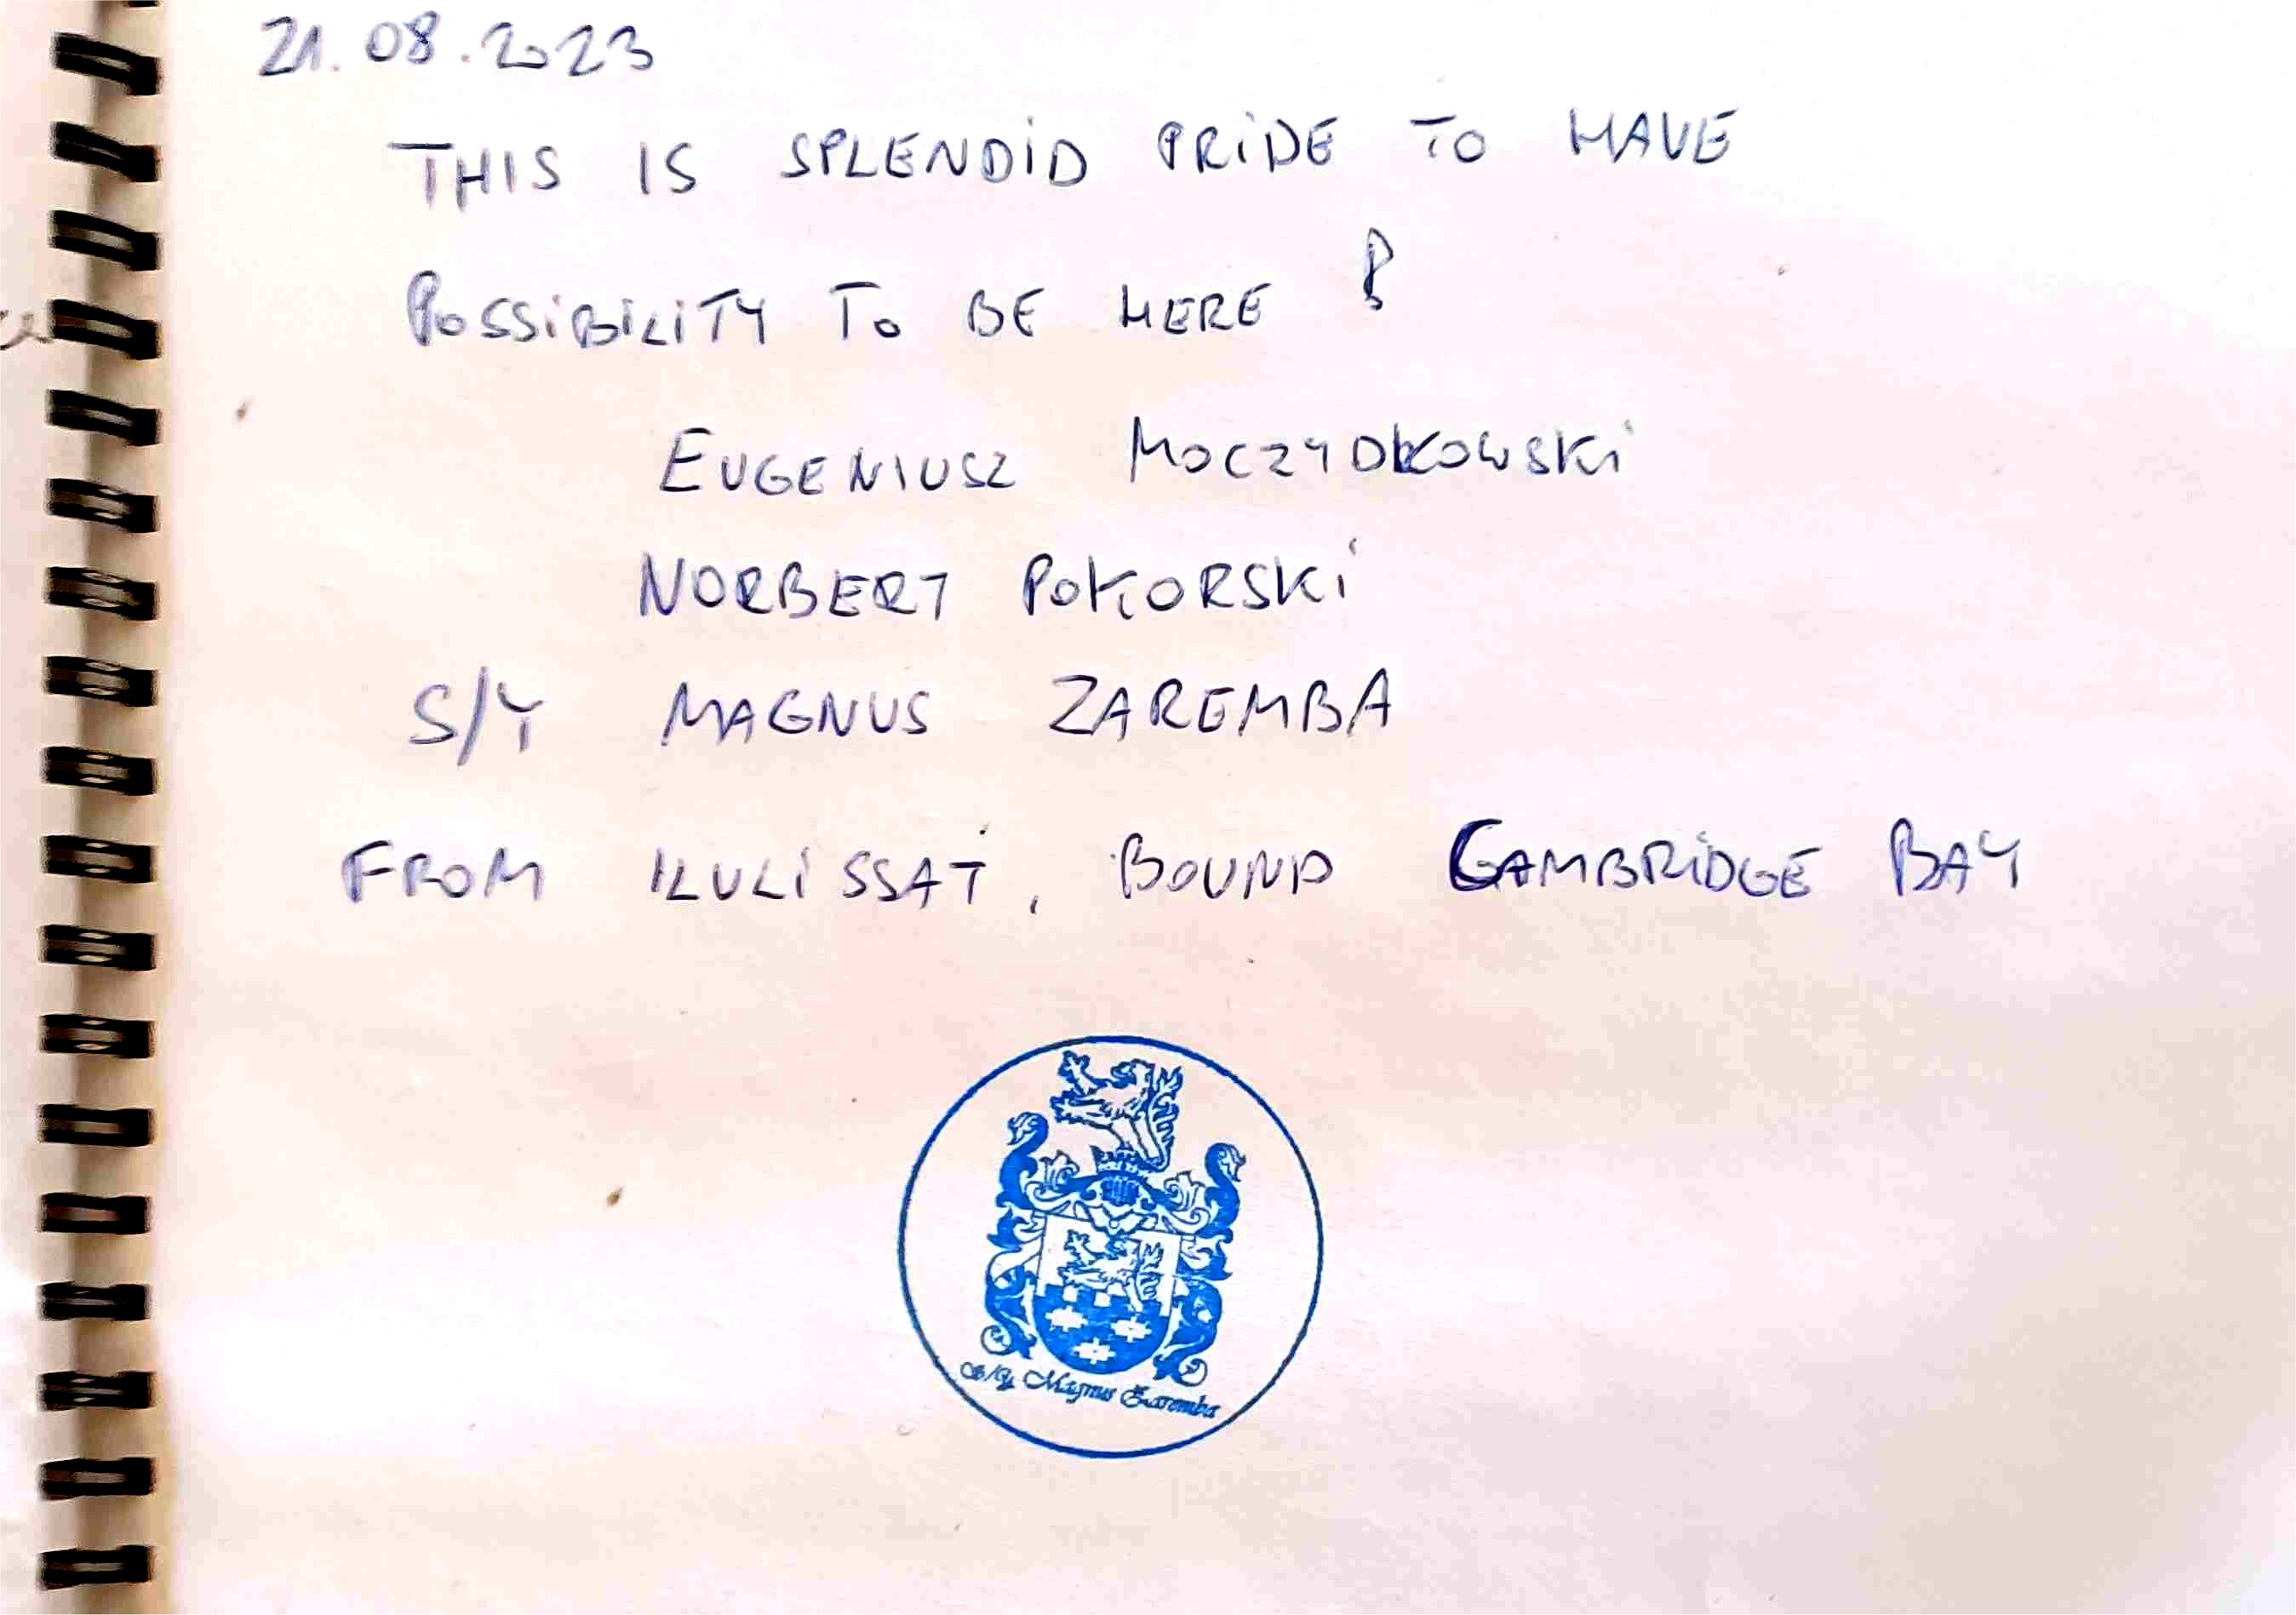 21.08.2023
THIS IS SPLENDID PRIDE TO HAVE
POSSIBILITY TO BE HERE !
EUGENIUSZ MOCZYDŁOWSKI
NORBERT POKORSKI
S/Y MAGNUS ZAREMBA
FROM ILULISSAT, BOUND CAMBRIDGE BAY
S/Y Magnus Zaremba